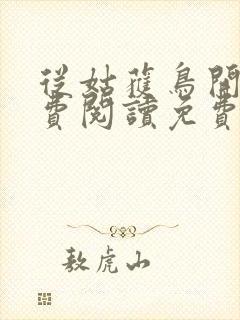 從姑獲鳥開
費閱讀免費
敖虎山